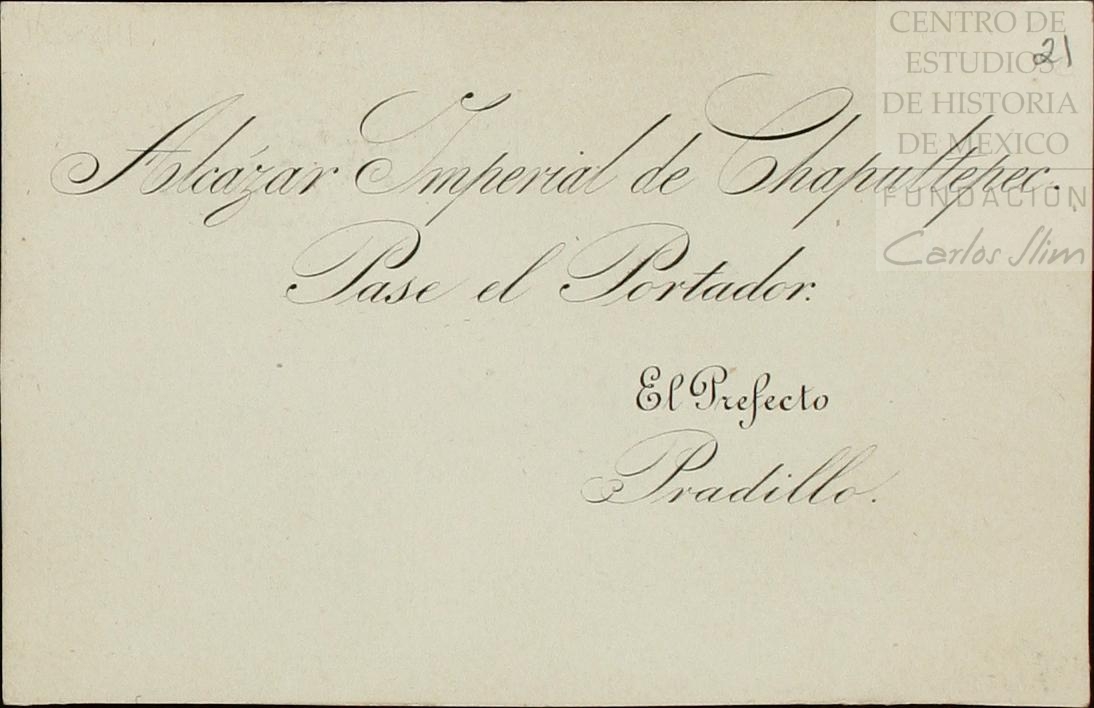 CENTRO DE
ESTUDIOS
DE HISTORIA
DE MEXICO
FUNDACIÓN
Carlos Slim
21
Alcázar Imperial de Chapultepec.
Pase el Portador.
El Prefecto
Pradillo.